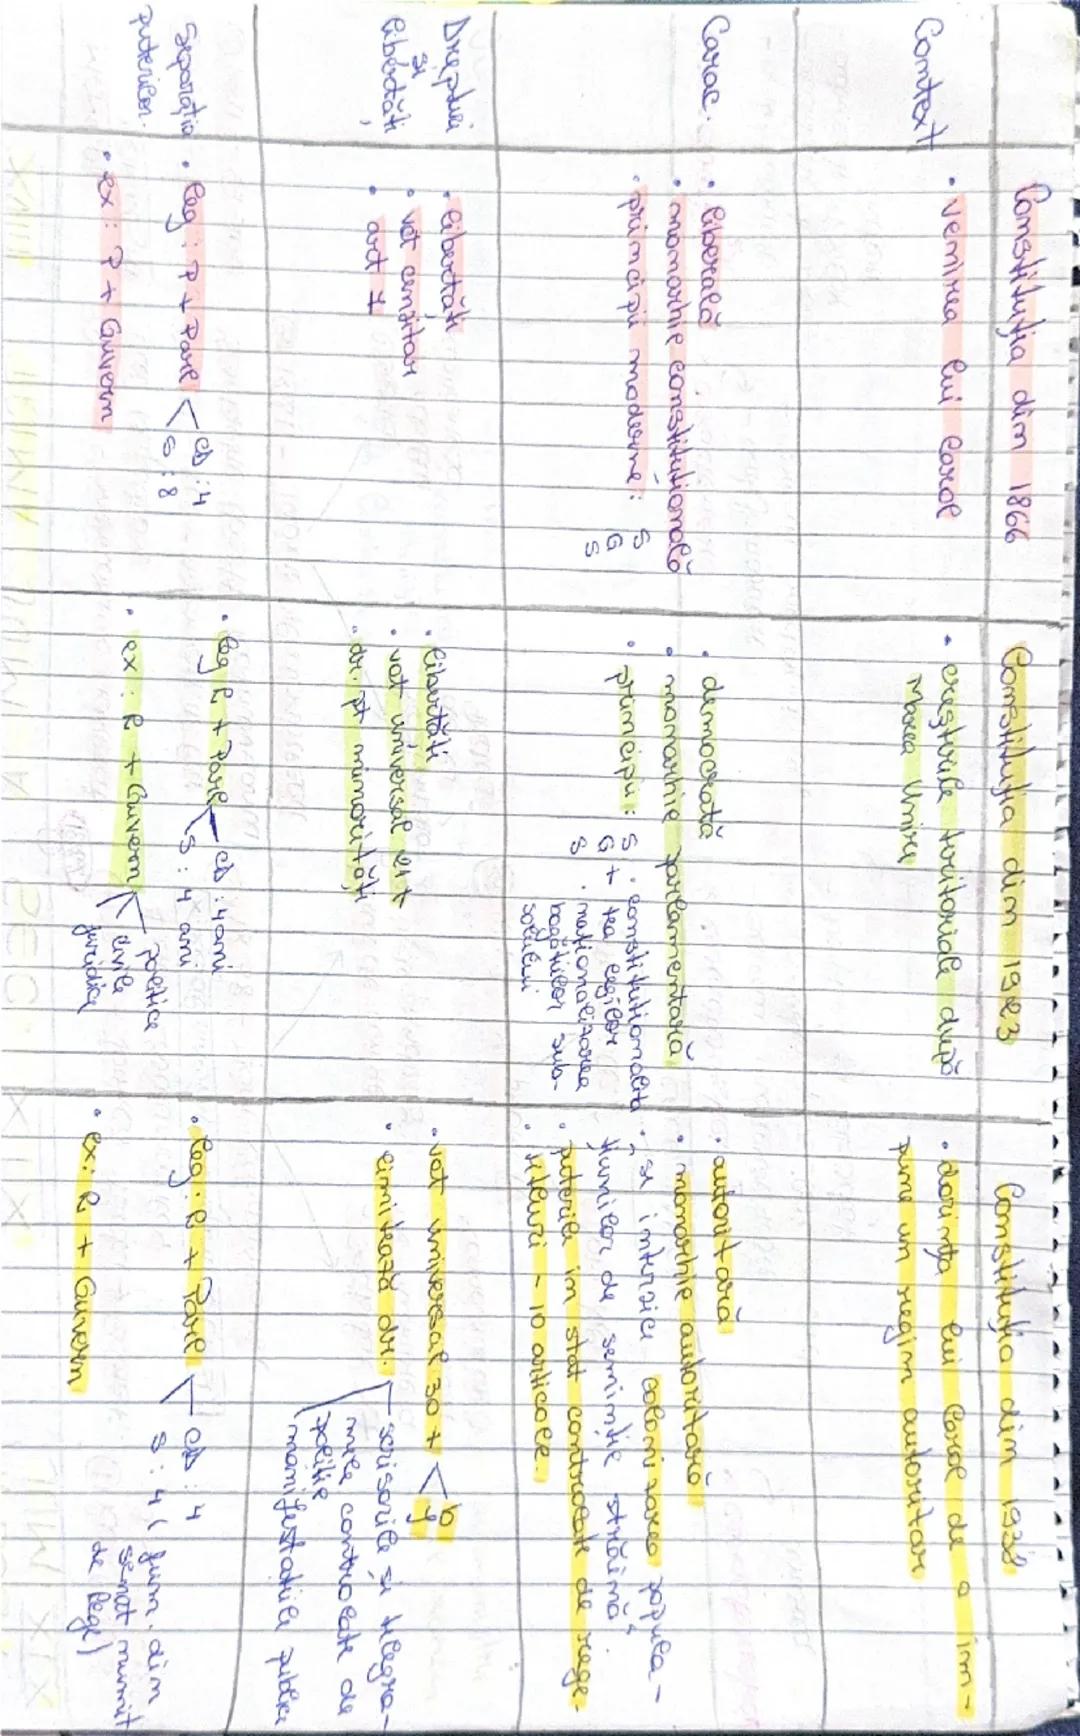 Constituția din 1866
Constituția din 1923
Constituția din 1938
Context
• venirea lui Carol
• creșterile teritoriale după
Marea Unire
• dorința lui Carol de a im-
pune un regim autoritar
Carac.
• liberală
• monarhie constituțională
• principii moderne: S
G
S
• democrată
• monarhie parlamentară
• principii: S
G +
S
• constituționalita
tea legilor
• naționalizarea
bogățiilor sub-
solului
• autoritară
• monarhie autoritară
• „se interzice colonizarea popula-
țiunilor de seminție străină"
• puterile în stat controlate de rege.
• titluri - 10 articole.
Drepturi
și
libertăți
• libertăți
• vot cenzitar
• art 7
• libertăți
• vot universal 21+
• dr. pt minorități
• vot universal 30+ < b
f
• limitează dr.
scrisorile și telegra-
mele controlate de
poliție
manifestațiile publice
Separația
puterilor.
• leg: P + Parl < CD: 4
S: 8
• ex: P + Guvern
• leg R + Parl < CD: 4 ani
S: 4 ani
• ex: R + Guvern
politice
civile
juridice
• leg: R + Parl < CD 4
S: 4 (jum. din
senat numit
de Rege)
• ex: R + Guvern